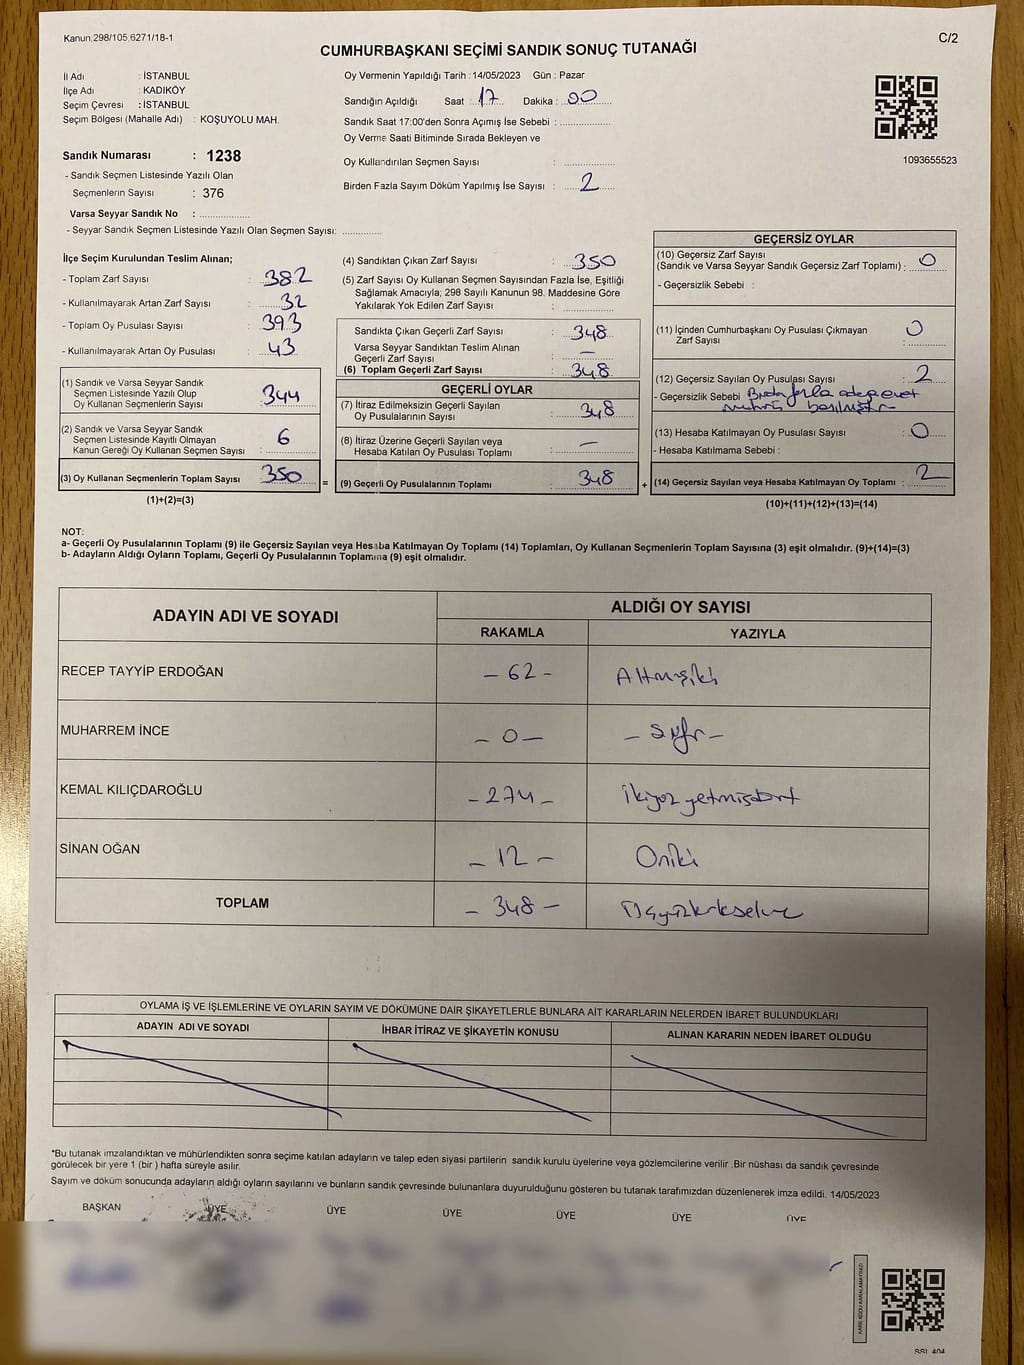 Kanun.298/105.6271/18-1
C/2
CUMHURBAŞKANI SEÇİMİ SANDIK SONUÇ TUTANAĞI
İl Adı : İSTANBUL
İlçe Adı : KADIKÖY
Seçim Çevresi : İSTANBUL
Seçim Bölgesi (Mahalle Adı) : KOŞUYOLU MAH.
Sandık Numarası : 1238
- Sandık Seçmen Listesinde Yazılı Olan
Seçmenlerin Sayısı : 376
Varsa Seyyar Sandık No : ................
- Seyyar Sandık Seçmen Listesinde Yazılı Olan Seçmen Sayısı: .............
Oy Vermenin Yapıldığı Tarih : 14/05/2023 Gün : Pazar
Sandığın Açıldığı Saat : 17 Dakika : 00
Sandık Saat 17:00'den Sonra Açımış İse Sebebi : ................
Oy Verme Saati Bitiminde Sırada Bekleyen ve
Oy Kullandırılan Seçmen Sayısı : ................
Birden Fazla Sayım Döküm Yapılmış İse Sayısı : 2
1093655523
İlçe Seçim Kurulundan Teslim Alınan;
- Toplam Zarf Sayısı : 382
- Kullanılmayarak Artan Zarf Sayısı : 32
- Toplam Oy Pusulası Sayısı : 393
- Kullanılmayarak Artan Oy Pusulası : 43
(1) Sandık ve Varsa Seyyar Sandık
Seçmen Listesinde Yazılı Olup
Oy Kullanan Seçmenlerin Sayısı : 344
(2) Sandık ve Varsa Seyyar Sandık
Seçmen Listesinde Kayıtlı Olmayan
Kanun Gereği Oy Kullanan Seçmen Sayısı : 6
(3) Oy Kullanan Seçmenlerin Toplam Sayısı : 350
(1)+(2)=(3)
(4) Sandıktan Çıkan Zarf Sayısı : 350
(5) Zarf Sayısı Oy Kullanan Seçmen Sayısından Fazla İse, Eşitliği
Sağlamak Amacıyla; 298 Sayılı Kanunun 98. Maddesine Göre
Yakılarak Yok Edilen Zarf Sayısı : ................
Sandıkta Çıkan Geçerli Zarf Sayısı : 348
Varsa Seyyar Sandıktan Teslim Alınan
Geçerli Zarf Sayısı : —
(6) Toplam Geçerli Zarf Sayısı : 348
GEÇERLİ OYLAR
(7) İtiraz Edilmeksizin Geçerli Sayılan
Oy Pusulalarının Sayısı : 348
(8) İtiraz Üzerine Geçerli Sayılan veya
Hesaba Katılan Oy Pusulası Toplamı : —
= (9) Geçerli Oy Pusulalarının Toplamı : 348
GEÇERSİZ OYLAR
(10) Geçersiz Zarf Sayısı
(Sandık ve Varsa Seyyar Sandık Geçersiz Zarf Toplamı) : 0
- Geçersizlik Sebebi :
(11) İçinden Cumhurbaşkanı Oy Pusulası Çıkmayan
Zarf Sayısı : 0
(12) Geçersiz Sayılan Oy Pusulası Sayısı : 2
- Geçersizlik Sebebi
(13) Hesaba Katılmayan Oy Pusulası Sayısı : 0
- Hesaba Katılmama Sebebi :
+ (14) Geçersiz Sayılan veya Hesaba Katılmayan Oy Toplamı : 2
(10)+(11)+(12)+(13)=(14)
NOT:
a- Geçerli Oy Pusulalarının Toplamı (9) ile Geçersiz Sayılan veya Hesaba Katılmayan Oy Toplamı (14) Toplamları, Oy Kullanan Seçmenlerin Toplam Sayısına (3) eşit olmalıdır. (9)+(14)=(3)
b- Adayların Aldığı Oyların Toplamı, Geçerli Oy Pusulalarının Toplamına (9) eşit olmalıdır.
ADAYIN ADI VE SOYADI ALDIĞI OY SAYISI
RAKAMLA YAZIYLA
RECEP TAYYİP ERDOĞAN - 62 - Altmışiki
MUHARREM İNCE - 0 - - sıfır -
KEMAL KILIÇDAROĞLU - 274 - ikiyüzyetmişdört
SİNAN OĞAN - 12 - Oniki
TOPLAM - 348 - Üçyüzkırksekiz
OYLAMA İŞ VE İŞLEMLERİNE VE OYLARIN SAYIM VE DÖKÜMÜNE DAİR ŞİKAYETLERLE BUNLARA AİT KARARLARIN NELERDEN İBARET BULUNDUKLARI
ADAYIN ADI VE SOYADI İHBAR İTİRAZ VE ŞİKAYETİN KONUSU ALINAN KARARIN NEDEN İBARET OLDUĞU
*Bu tutanak imzalandıktan ve mühürlendikten sonra seçime katılan adayların ve talep eden siyasi partilerin sandık kurulu üyelerine veya gözlemcilerine verilir .Bir nüshası da sandık çevresinde
görülecek bir yere 1 (bir ) hafta süreyle asılır.
Sayım ve döküm sonucunda adayların aldığı oyların sayılarını ve bunların sandık çevresinde bulunanlara duyurulduğunu gösteren bu tutanak tarafımızdan düzenlenerek imza edildi. 14/05/2023
BAŞKAN ÜYE ÜYE ÜYE ÜYE ÜYE ÜYE
KARE KODU KARALAMAYINIZ!